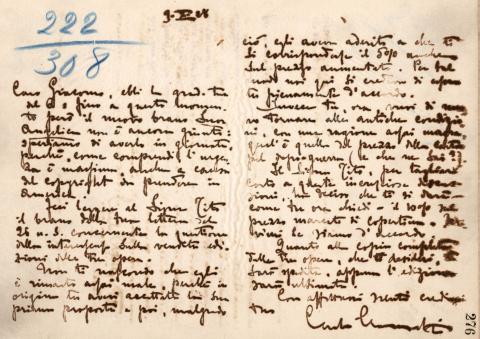 222
308
Caro Giacomo, ebbi la grad. tua
del 2 e fino a questo momen-
to però il nuovo brano Suor
Angelica non è ancora giunto:
speriamo di averlo in giornata,
perchè, come comprendi, l'urgen-
za è massima, anche a causa
del copyright da prendere in
America.
Feci leggere al Signor Tito
il brano della tua lettera del
26 u. s. concernente la questione
delle interessenze sulla vendita edi-
zioni delle tre opere.
Non ti nascondo che egli
è rimasto assai male, perchè in
origine tu avevi accettato la sua
prima proposta e poi, malgrado
ciò, egli aveva aderito a che ti
si corrispondesse il
sul prezzo aumentato. Per tal
modo noi qui si credeva di essere
tu pienamente d'accordo.
Invece tu ora vuoi di nuo-
vo tornare alle antiche condizio-
ni, con una ragione assai magra
qual'è quella del prezzo della carta
del dopo-guerra (e che ne sai?).
Il Signor Tito, per tagliare
corto a queste incresciose discus-
sioni, ha deciso che ti si darà
come tu ora chiedi il
prezzo marcato di copertina.
Quanto alle copie complete
delle tre opere, che tu desideri, ti
sarà spedita, appena l'edizione
sarà ultimata.
Con affettuosi saluti credimi
tuo
Carlo Clausetti
276